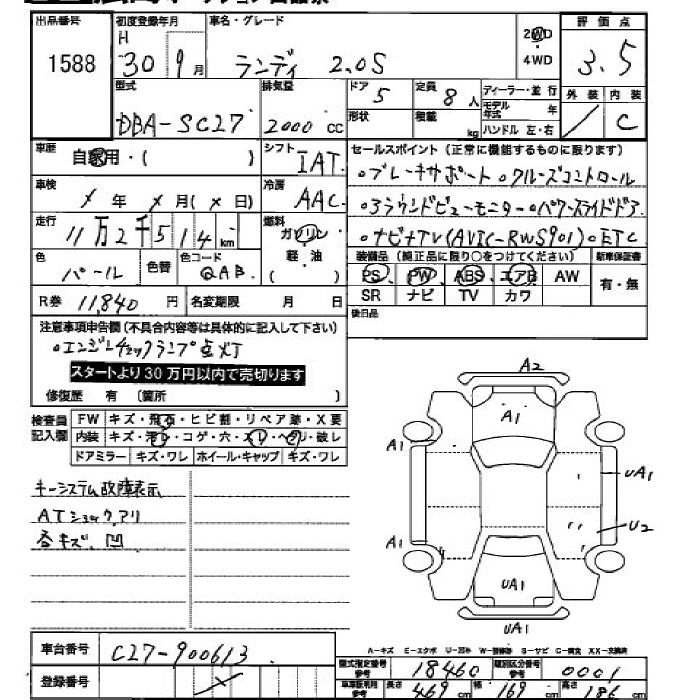 出品番号 初度登録年月 車名・グレード 評価点
1588 H 30 9月 ランディ 2.0S 2WD 4WD 3.5
型式 排気量 ドア 5 定員 8人 ディーラー・並行 外装 内装
DBA-SC27 2000cc 形状 積載 kg モデル年式 年 ハンドル 左・右 C
車歴 自家用・( ) シフト IAT セールスポイント(正常に機能するものに限ります)
車検 年 月( 日) 冷房 AAC 。ブレーキサポート。クルーズコントロール
走行 11万2千514km 燃料 ガソリン 軽・油 ( ) 。アラウンドビューモニター。パワースライドドア
。ナビ+TV(AVIC-RWS901)。ETC
色 パール 色替 色コード QAB 装備品(純正品に限り○をつけてください) 新車保証書
PS PW ABS エアB AW 有・無
R券 11,840円 名変期限 月 日 SR ナビ TV カワ
後日品
注意事項申告欄(不具合内容等は具体的に記入して下さい)
。エンジンチェックランプ点灯
スタートより30万円以内で売切ります
修復歴 有 (箇所 )
検査員記入欄 FW キズ・飛石・ヒビ割・リペア跡・X要
内装 キズ・汚れ・コゲ・穴・スレ・ヘタリ・破レ
ドアミラー キズ・ワレ ホイール・キャップ キズ・ワレ
キーシステム故障表示
ATショックアリ
各キズ、凹
A2
A1
A1
UA1
U2
A1
UA1
UA1
A-キズ E-エクボ U-凹み W-補修跡 S-サビ C-腐食 XX-交換済
車台番号 C27-900613
登録番号
型式指定番号参考 18460 類別区分番号参考 0001
長さ 469cm 幅 169cm 高さ 186cm